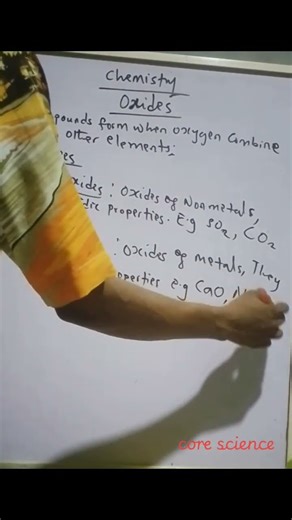 Chemistry
Oxides
pounds form when oxygen Combine
other elements;
es
xides : Oxides of Nonmetals,
dic properties. E.g SO₂, CO₂
: Oxides of metals, They
operties E.g CaO, N
core science